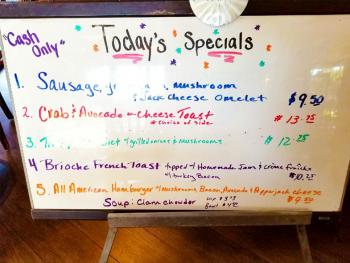 "Cash Only"
Today's Specials
1. Sausage, mushroom
& Jack Cheese Omelet $9.50
2. Crab & Avocado w Cheese Toast
* choice of side $13.75
3. grilled onions & mushrooms $12.25
4 Brioche French Toast topped w Homemade Jam & crème fraîche
w turkey Bacon $10.25
5. All American Hamburger w mushrooms, Bacon, Avocado & Pepperjack cheese
$9.50
Soup: Clam chowder cup
Bowl